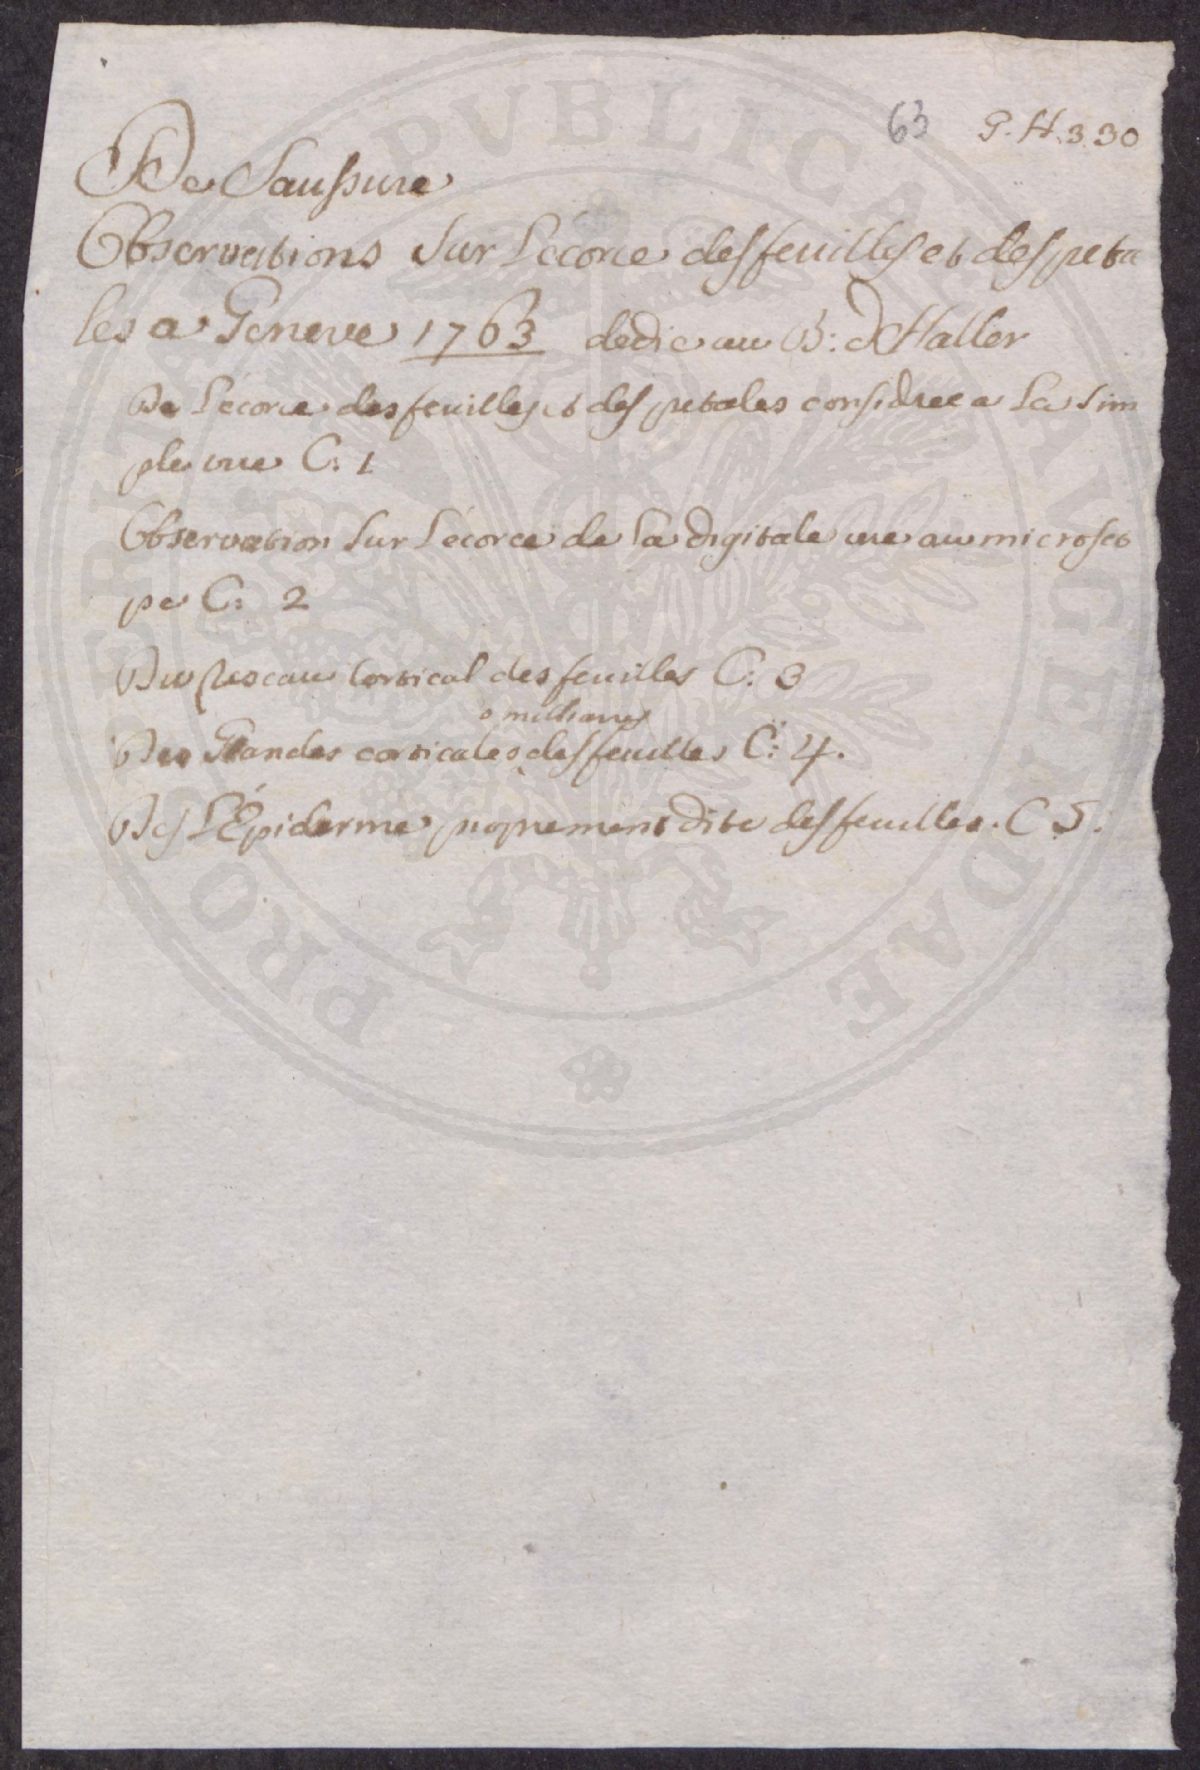 63 P. H. 3 30
De Saussure
Observations Sur L'écorce des feuilles et des peta
les a Geneve 1763 dedie au B: d'Haller
De L'ecorce des feuilles et des petales considree a La Sim
ple vue C: 1
Observation Sur L'ecorce de La digitale vue au microsco
pe C: 2
Du Reseau Cortical des feuilles C: 3
o milliares
Des Glandes corticales des feuilles C: 4.
De L'Épiderme proprement dite des feuilles. C 5.
PROSPERITATI PUBLICAE AUGENDAE